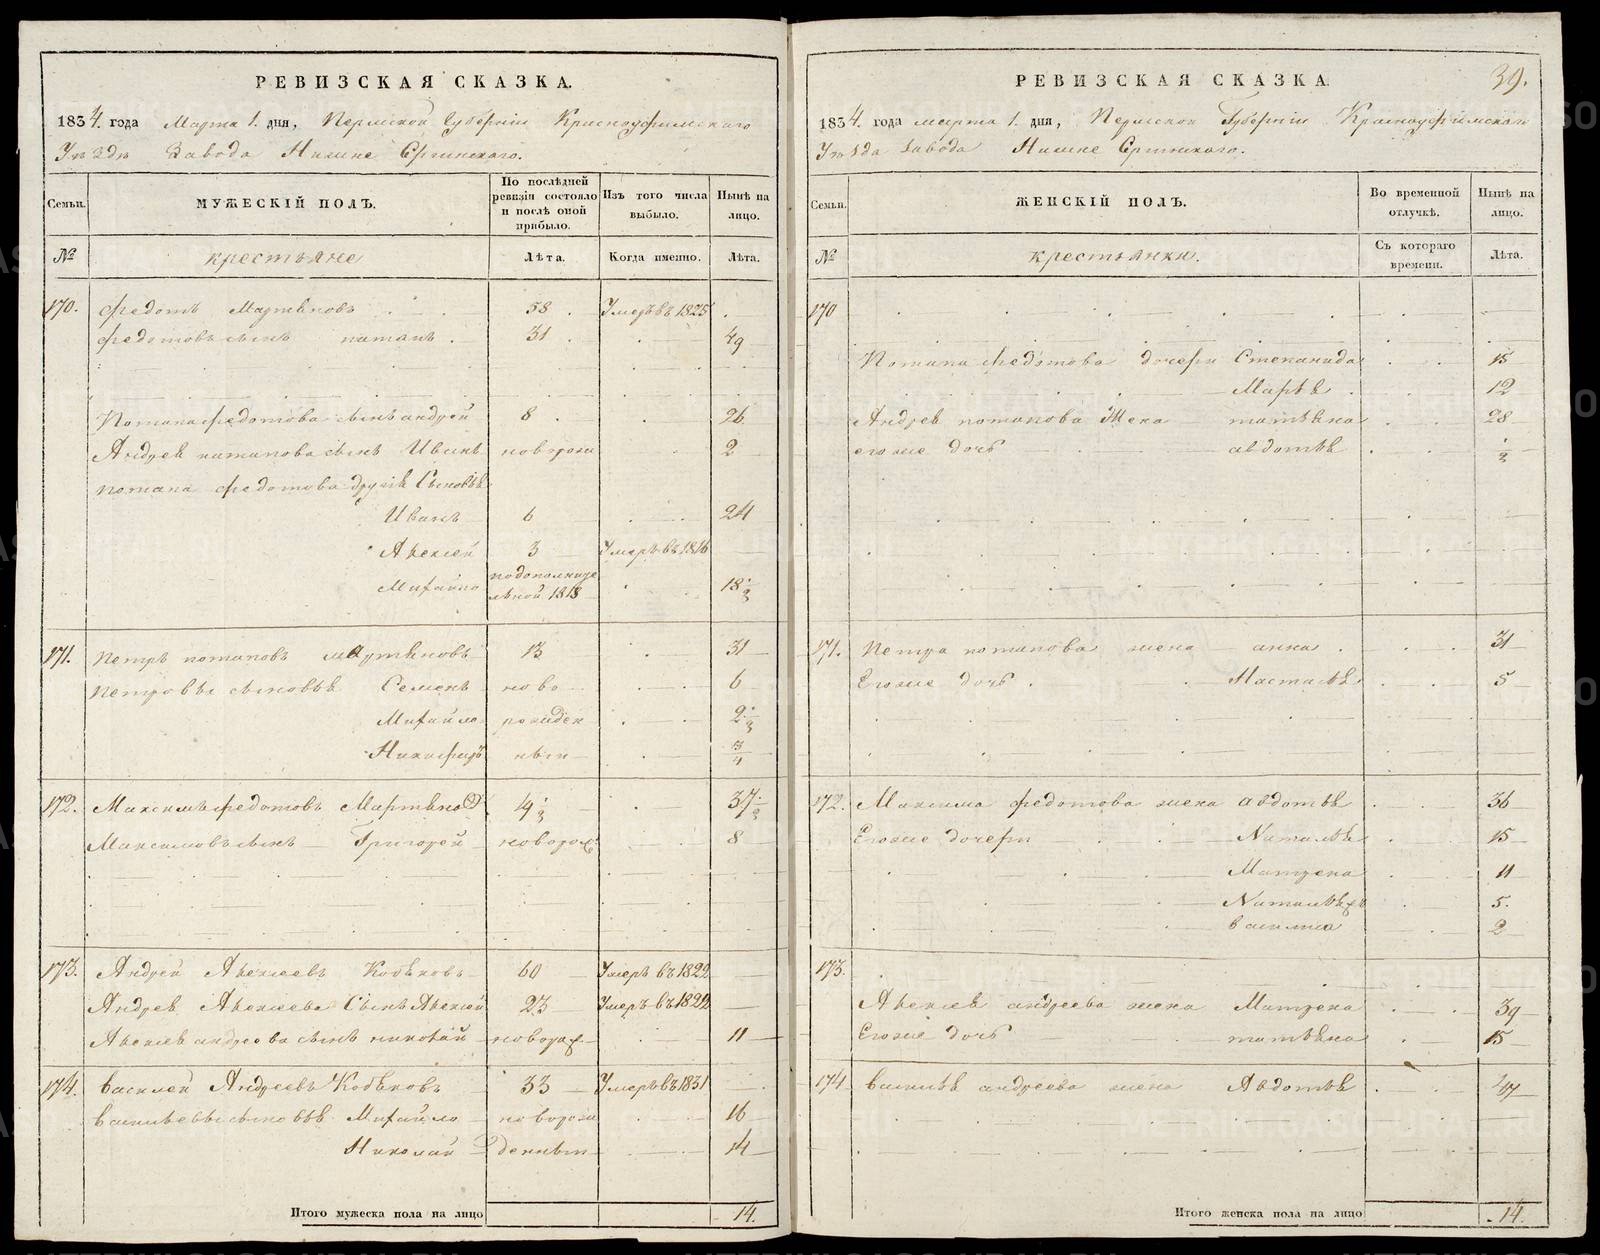 РЕВИЗСКАЯ СКАЗКА.
1834. года Марта 1. дня, Пермской Губернии Красноуфимскаго
Уѣзда Завода Нижне Сергинскаго.
Семьи. МУЖЕСКІЙ ПОЛЪ. По послѣдней ревизіи состояло и послѣ оной прибыло. Изъ того числа выбыло. Нынѣ на лицо.
№ крестьяне Лѣта. Когда именно. Лѣта.
170. Федотъ Мартяновъ 58 Умеръ въ 1825
Федотовъ сынъ Потапъ 31 49
Потапа Федотова сынъ Андрей 8 26
Андрея Потапова сынъ Иванъ новорож 2
Потапа Федотова другіе Сыновья
Иванъ 6 24
Алексей 3 Умеръ въ 1816
Михайло по дополнителной 1818 18 1/2
171. Петръ Потаповъ Мартяновъ 13 31
Петровы сыновья Семенъ ново 6
Михайло рожден 2 1/2
Никифоръ ные 3/4
172. Максимъ Федотовъ Мартяновъ 19 1/2 37 1/2
Максимовъ сынъ Григорей новорож 8
173. Андрей Алексеевъ Кобяковъ 60 Умеръ въ 1822
Андрея Алексеева Сынъ Алексей 23 Умеръ въ 1822
Алексея Андреева сынъ Николай новорож 11
174. Василей Андреевъ Кобяковъ 33 Умеръ въ 1831
Васильевы сыновья Михайло новорож 16
Николай денные 14
Итого мужеска пола на лицо 14.
39.
РЕВИЗСКАЯ СКАЗКА.
1834. года марта 1. дня, Пермской Губернии Красноуфимскаго
Уѣзда Завода Нижне Сергинскаго.
Семьи. ЖЕНСКІЙ ПОЛЪ. Во временной отлучкѣ. Нынѣ на лицо.
№ крестьянки. Съ котораго времени. Лѣта.
170
Потапа Федотова дочери Степанида 15
Марья 12
Андрея Потапова Жена Татьяна 28
его же дочь Авдотья 1/2
171. Петра Потапова жена Анна 31
Его же дочь Насталья 5
172. Максима Федотова жена Авдотья 36
Его же дочери Наталья 15
Матрена 11
Наталья 5
Василиса 2
173.
Алексея Андреева жена Матрена 39
Его же дочь Татьяна 15
174 Василья Андреева жена Авдотья 47
Итого женска пола на лицо 14.